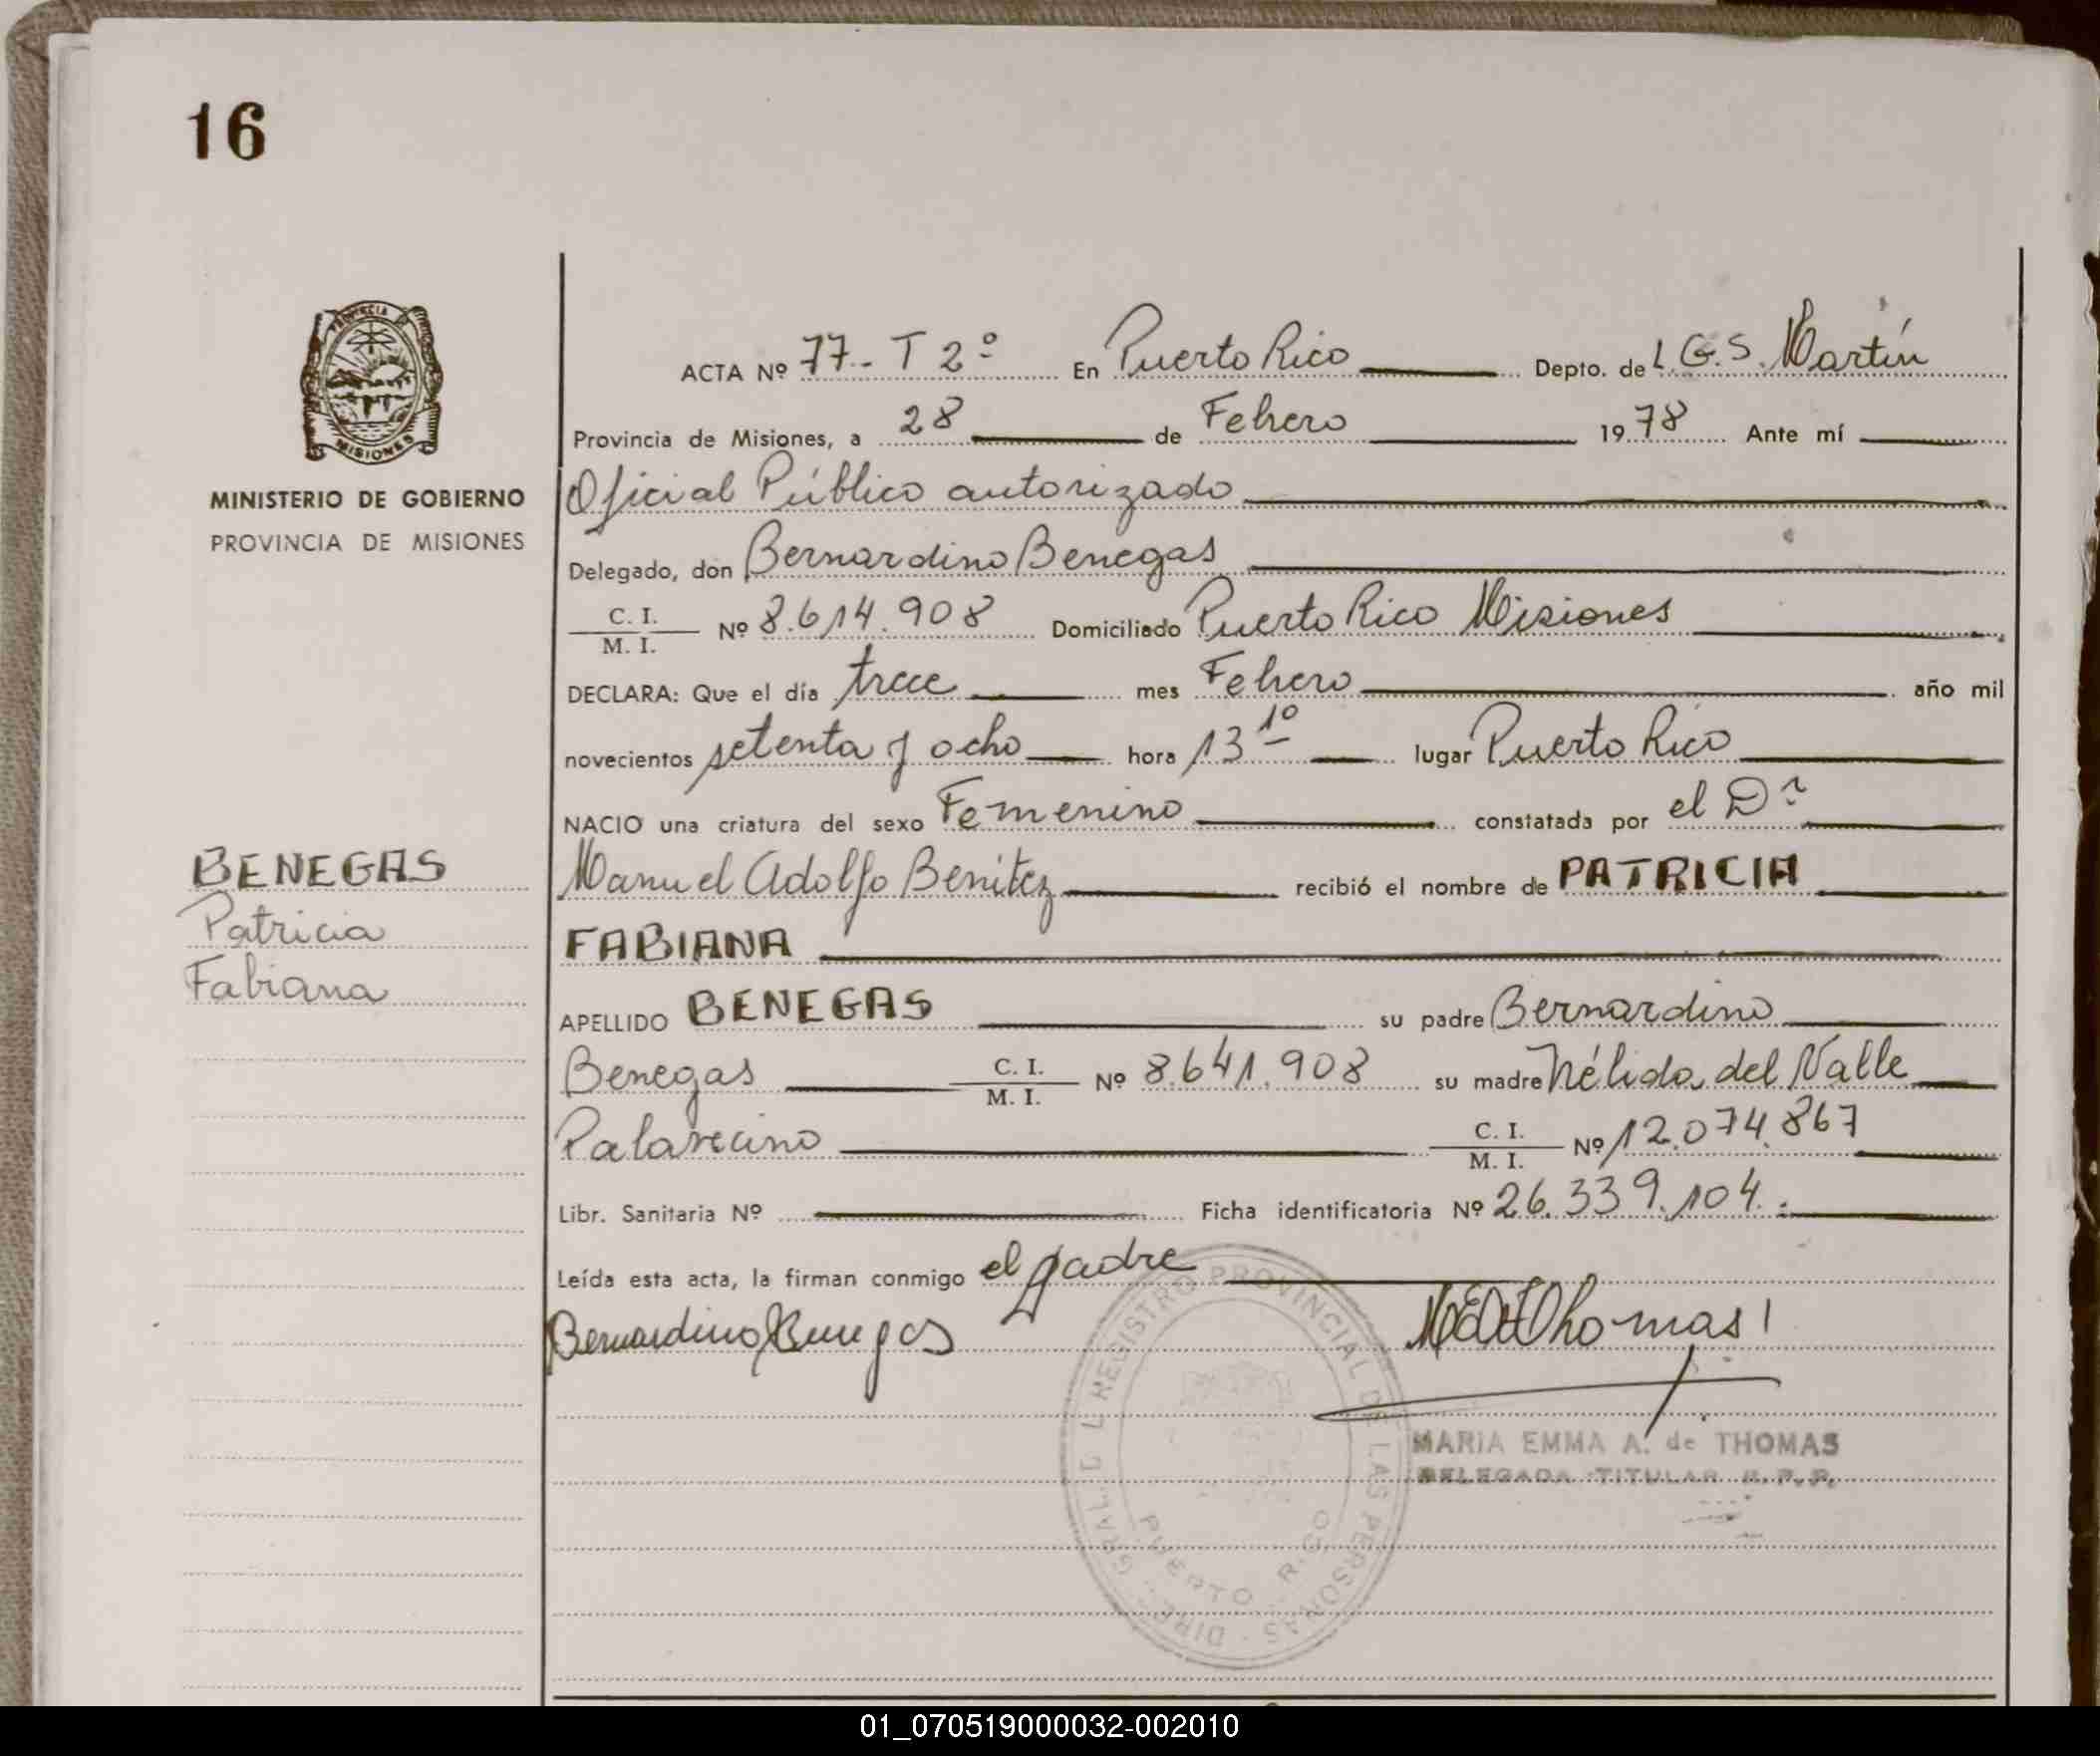 16
PROVINCIA
MISIONES
MINISTERIO DE GOBIERNO
PROVINCIA DE MISIONES
ACTA Nº 77.- T 2º En Puerto Rico Depto. de L.G.S. Martín
Provincia de Misiones, a 28 de Febrero 1978 Ante mí
Oficial Público autorizado
Delegado, don Bernardino Benegas
C. I. / M. I. Nº 8.614.908 Domiciliado Puerto Rico Misiones
DECLARA: Que el día trece mes Febrero año mil
novecientos setenta y ocho hora 13 10 lugar Puerto Rico
NACIO una criatura del sexo Femenino constatada por el Dr.
Manuel Adolfo Benítez recibió el nombre de PATRICIA
FABIANA
APELLIDO BENEGAS su padre Bernardino
Benegas C. I. / M. I. Nº 8.641.908 su madre Nélida del Valle
Palavecino C. I. / M. I. Nº 12.074.867
Libr. Sanitaria Nº Ficha identificatoria Nº 26.339.104.
Leída esta acta, la firman conmigo el padre
Bernardino Benegas MEAdeThomas
BENEGAS
Patricia
Fabiana
DIREC. GRAL. DEL REGISTRO PROVINCIAL DE LAS PERSONAS
PUERTO RICO
MARIA EMMA A. de THOMAS
DELEGADA TITULAR R.P.P.
01_070519000032-002010